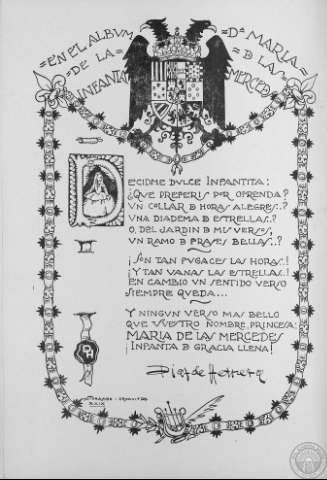 EN EL ALBVM DE LA INFANTA
Dª MARIA D LAS MERCED
DECIDME DVLCE INFANTITA:
¿QVE PREFERIS POR OFRENDA?
VN COLLAR D HORAS ALEGRES..?
VNA DIADEMA D ESTRELLAS..?
O, DEL JARDIN D MIS VERSOS,
VN RAMO D FRASES BELLAS..?
¡SON TAN FVGACES LAS HORAS.!
¡Y TAN VANAS LAS ESTRELLAS.!
EN CAMBIO VN SENTIDO VERSO
SIEMPRE QVEDA...
Y NINGVN VERSO MAS BELLO
QVE VVESTRO NOMBRE, PRINCESA:
MARIA DE LAS MERCEDES
¡INFANTA D GRACIA LLENA!
Diaz de Herrera
XXIX